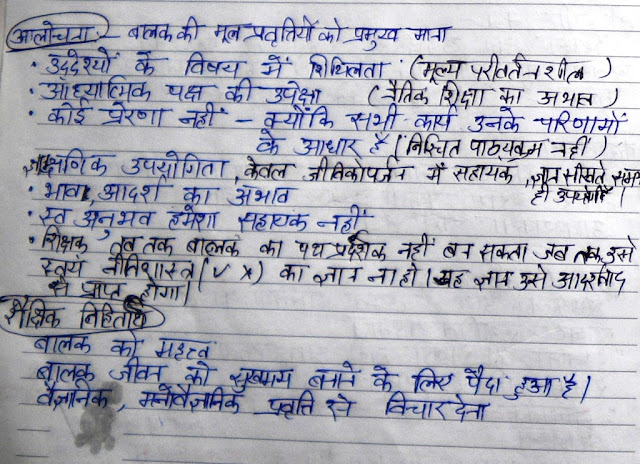 आलोचना :- बालक की मूल प्रवृतियों को प्रमुख माना
• उद्देश्यों के विषय में शिथिलता (मूल्य परीवर्तनशील)
• आध्यात्मिक पक्ष की उपेक्षा (नैतिक शिक्षा का अभाव)
• कोई प्रेरणा नहीं - क्योंकि सभी कार्य उनके परिणामों
के आधार है (निश्चित पाठ्यक्रम नहीं)
क्षणिक उपयोगिता, केवल जीविकोपर्जन में सहायक, ज्ञान सीखते समय
ही उपयोगी।
• भाव, आदर्श का अभाव
• स्व अनुभव हमेशा सहायक नहीं
• शिक्षक तब तक बालक का पथ प्रदर्शक नहीं बन सकता जब तक उसे
स्वयं नीतिशास्त्र (✓ x) का ज्ञान ना हो। यह ज्ञान उसे आदर्शवाद
से प्राप्त होगा।
शैक्षिक निहितार्थ
बालक को महत्व
बालक जीवन को सुखमय बनाने के लिए पैदा हुआ है।
वैज्ञानिक, मनोवैज्ञानिक प्रवृति से विचार देना